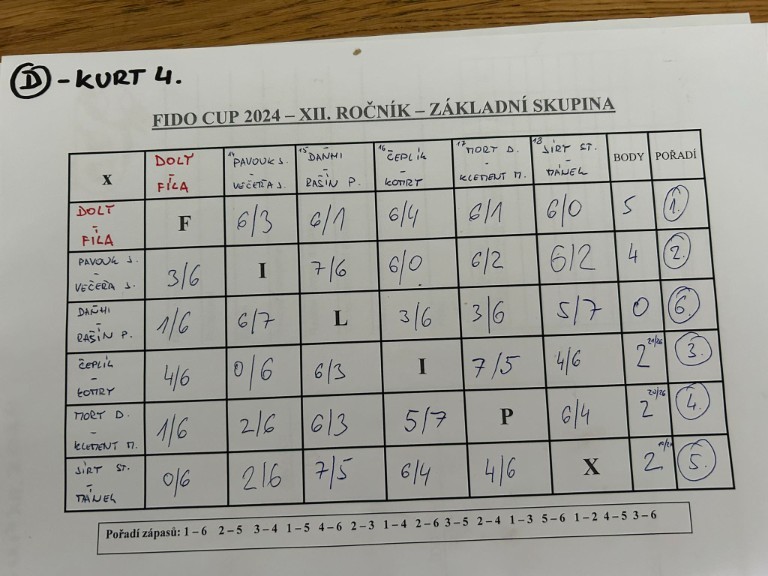 D - KURT 4.
FIDO CUP 2024 – XII. ROČNÍK – ZÁKLADNÍ SKUPINA
X DOLY - FÍLA PAVOUK J. - VEČEŘA J. 15 DAŇHI - RAŠÍN P. 16 ČEPLÍK - KOTRY 17 MORT D. - KLEMENT M. 18 JÍRT ST. - MÁNEK BODY POŘADÍ
DOLY - FÍLA F 6/3 6/1 6/4 6/1 6/0 5 1.
PAVOUK J. - VEČEŘA J. 3/6 I 7/6 6/0 6/2 6/2 4 2.
DAŇHI - RAŠÍN P. 1/6 6/7 L 3/6 3/6 5/7 0 6.
ČEPLÍK - KOTRY 4/6 0/6 6/3 I 7/5 4/6 2 21/26 3.
MORT D. - KLEMENT M. 1/6 2/6 6/3 5/7 P 6/4 2 20/26 4.
JÍRT ST. - MÁNEK 0/6 2/6 7/5 6/4 4/6 X 2 5.
Pořadí zápasů: 1 – 6 2 – 5 3 – 4 1 – 5 4 – 6 2 – 3 1 – 4 2 – 6 3 – 5 2 – 4 1 – 3 5 – 6 1 – 2 4 – 5 3 – 6